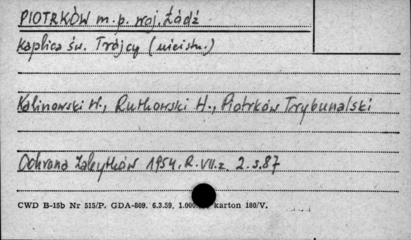 PIOTRKÓW m.p. woj. Łódź
kaplica św. Trójcy (nieistn.)
Kalinowski W., Rutkowski H., Piotrków Trybunalski
Ochrona Zabytków 1954. R. VII. z. 2. s. 87
CWD B-15b Nr 515/P. GDA-809. 6.3.59, 1.000. karton 180/V.